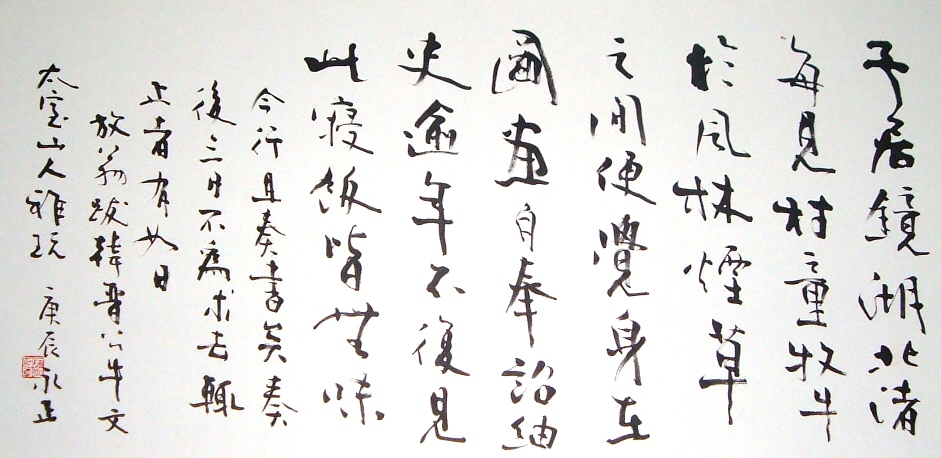 予居鏡湖北渚
每見村童牧牛
於風林煙草
之間便覺身在
圖畫自奉詔紬
史逾年不復見
此寢飯皆無味
今行且奏書矣奏
後三日不為求去輒
止者有如日
放翁跋韓晉公牛文
太室山人雅玩 庚辰永正